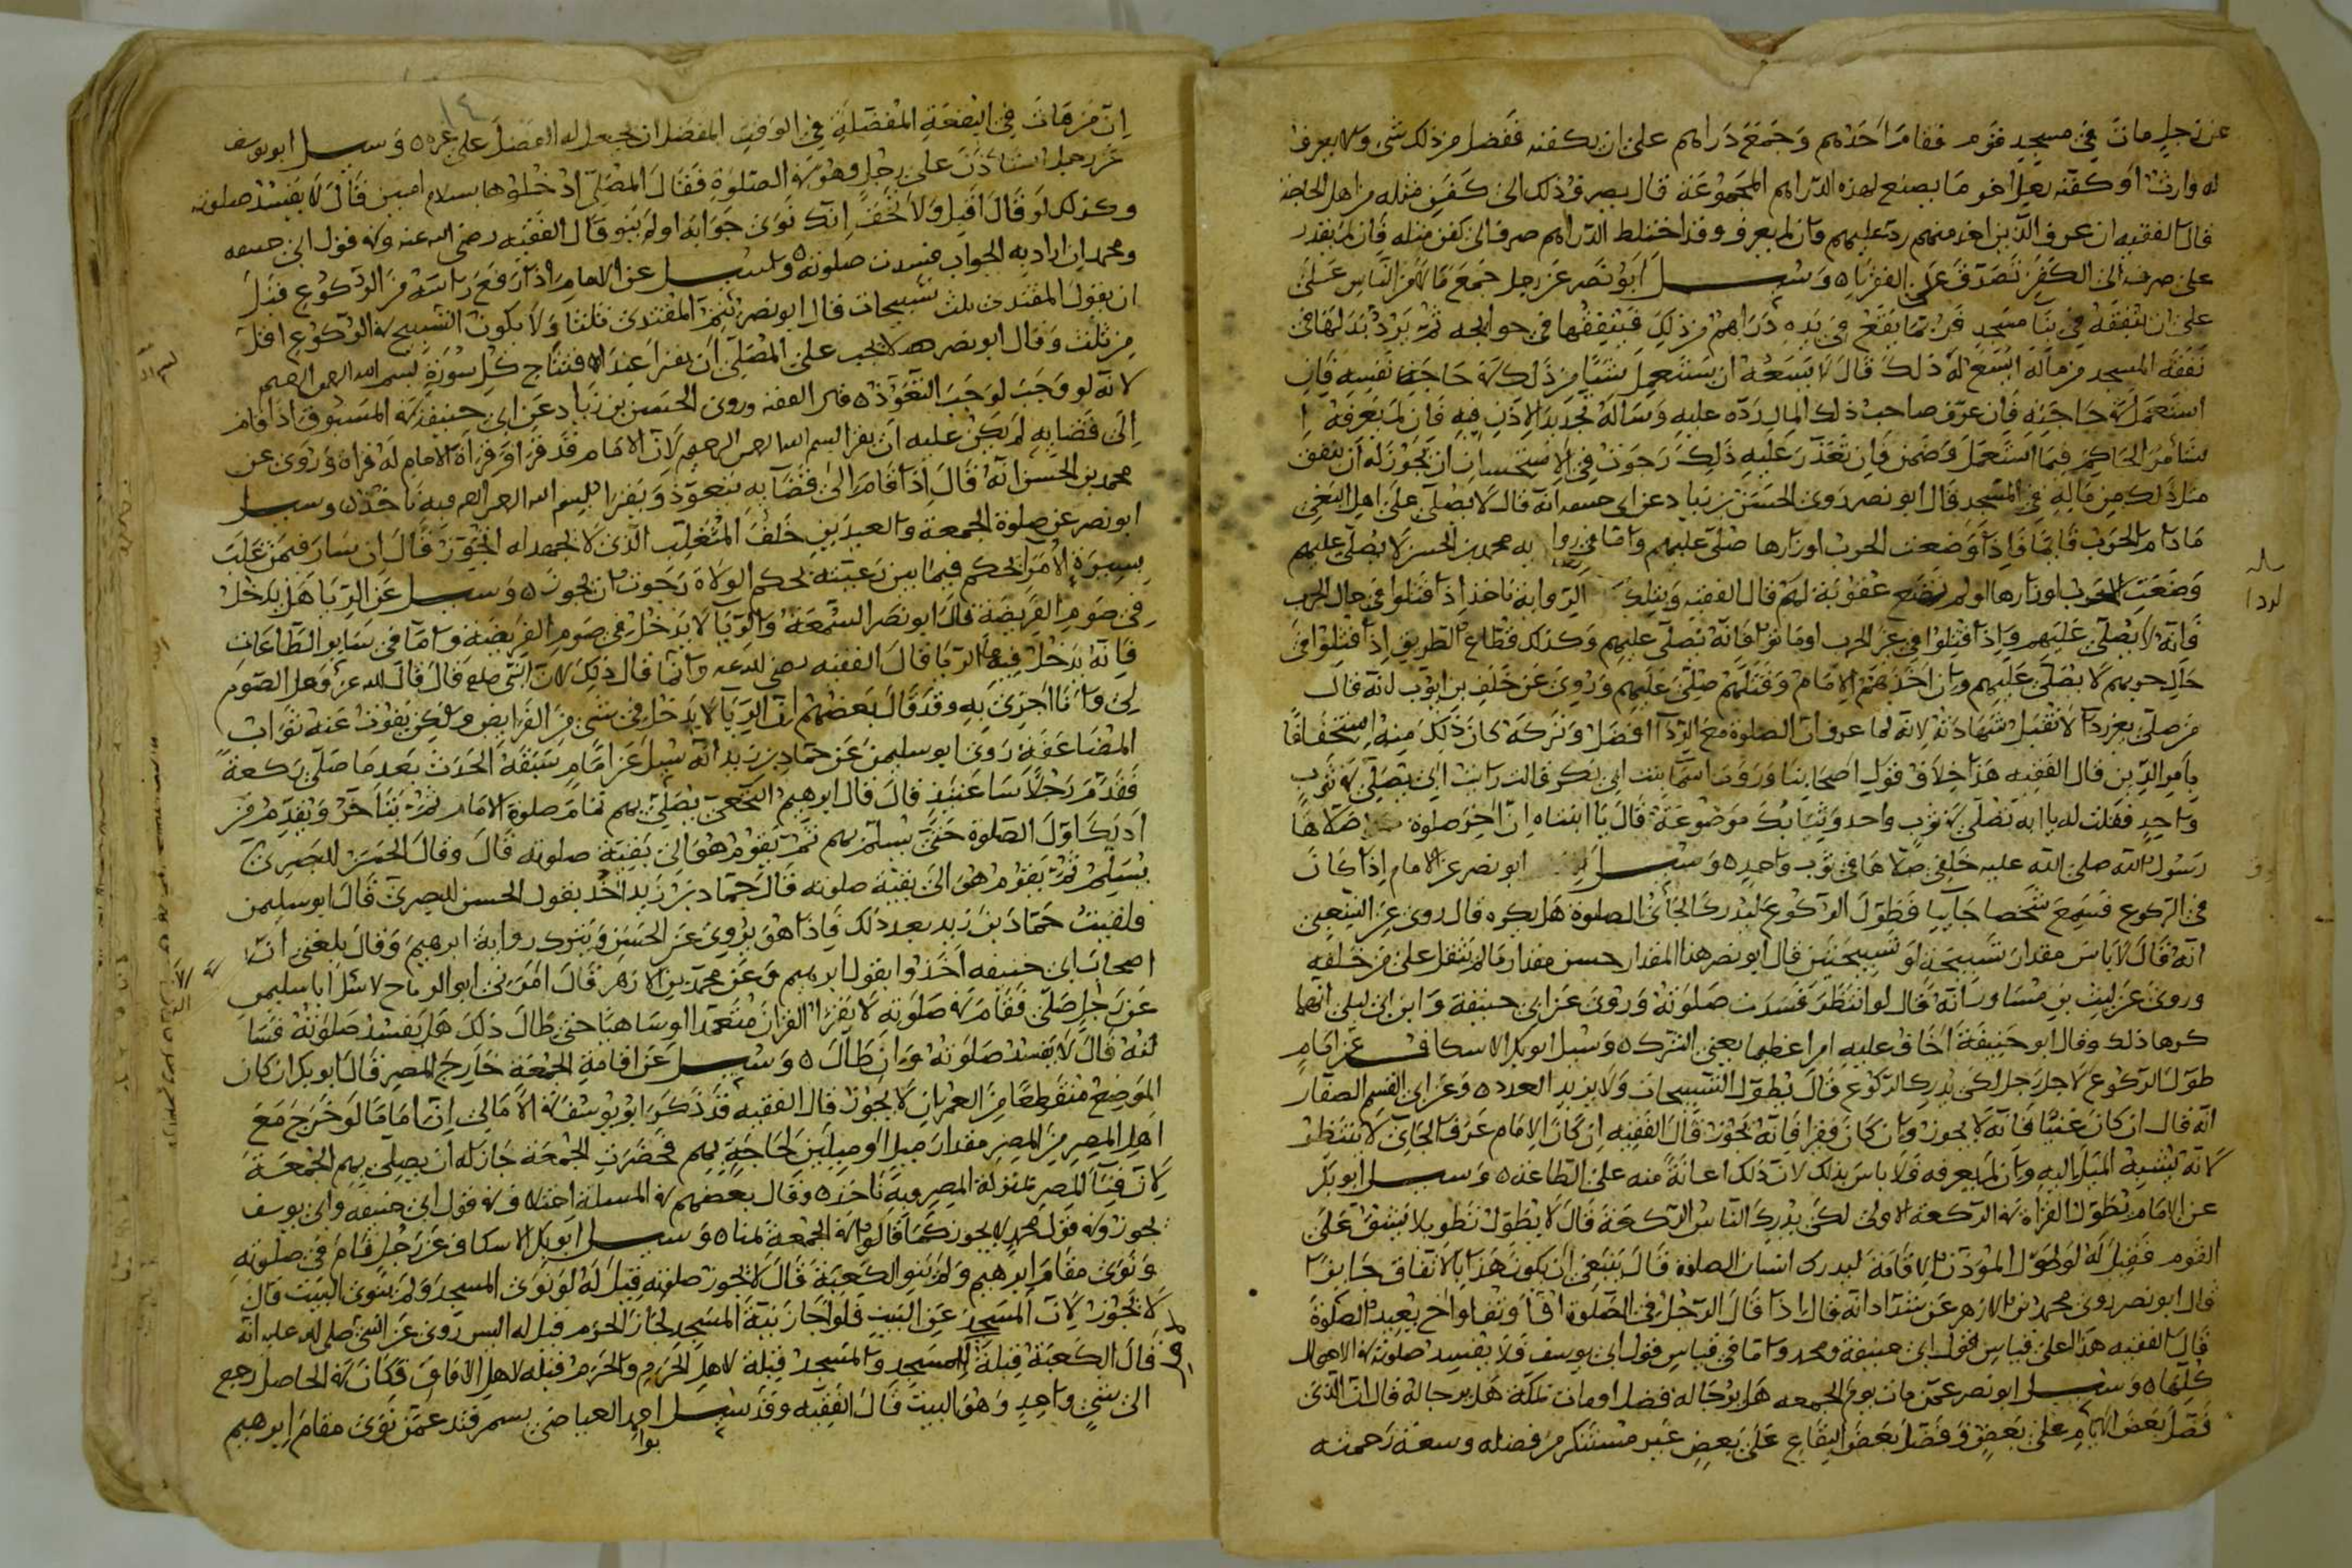 عن رجل مات في مسجد قوم فقام احدهم وجمع دراهم على ان يكفنه ففضل من ذلك شي ولا يعرف
له وارث او كفنه ما يصنع بهذه الدراهم المجموعة قال يصرف ذلك الى كفن مثله من اهل الحاجة
قال الفقيه ان عرف الذين اخذ منهم رد عليهم فان لم يعرف وقد اختلط الدراهم صرف الى كفن مثله فان لم يقدر
على صرفه الى الكفن تصدق على الفقراء ٥ وسئل ابو نصر عن رجل جمع مالا من الناس على
على ان ينفقه في بنا مسجد فربما يقع في يده دراهم من ذلك فينفقها في حوائجه ثم يرد بدلها في
نفقة المسجد من ماله ايسع له ذلك قال لا يسعه ان يستعمل شيا من ذلك في حاجة نفسه فان
استعمله في حاجته فان عرف صاحب ذلك المال رده عليه وساله تجديد الاذن فيه فان لم يعرفه
استامر الحاكم فيما استعمل وضمن فان تعذر عليه ذلك رجوت في الاستحسان ان يجوز له ان ينفق
مثل ذلك من ماله في المسجد قال ابو نصر روى الحسن بن زياد عن ابي حنيفه انه قال لا يصلى على اهل البغي
ما دام الحرب قائما فاذا وضعت الحرب اوزارها صلى عليهم واما في رواية محمد بن الحسن لا يصلى عليهم
وضعت الحرب اوزارها او لم تضع عقوبة لهم قال الفقيه وبتلك الرواية ناخذ اذا قتلوا في حال الحرب
فانه لا يصلى عليهم واذا قتلوا في غير الحرب او ماتوا فانه يصلى عليهم وكذلك قطاع الطريق اذا قتلوا في
حال حربهم لا يصلى عليهم وان اخذهم الامام وقتلهم صلي عليهم وروي عن خلف بن ايوب انه قال
من صلى بغير ردآ لا تقبل شهادته لانه لما عرف ان الصلوة مع الردآ افضل وتركه كان ذلك منه استخفافا
بامر الدين قال الفقيه هذا خلاف قول اصحابنا وروت اسما بنت ابي بكر قالت رايت ابي يصلي في ثوب
واحد فقلت له يا ابه تصلي في ثوب واحد وثيابك موضوعة قال يا ابنتاه ان اخر صلوة صلاها
رسول الله صلى الله عليه خلفي صلاها في ثوب واحد ٥ وسئل ابو نصر عن الامام اذا كان
في الركوع فسمع شخصا جائيا فطول الركوع ليدرك الجائي الصلوة هل يكره قال روي عن الشعبي
انه قال لا باس مقدار تسبيحة او تسبيحتين قال ابو نصر هذا المقدار حسن مقدار ما لم يثقل على من خلفه
وروى عن ليث بن مساور انه قال لو انتظر فسدت صلوته وروي عن ابي حنيفة وابن ابي ليلى انهما
كرها ذلك وقال ابو حنيفة اخاف عليه امرا عظيما يعني الشرك ٥ وسئل ابو بكر الاسكاف عن امام
طول الركوع لاجل رجل لكي يدرك الركوع قال يطول التسبيحات ولا يزيد العدد ٥ وعن ابي القسم الصفار
انه قال ان كان غنيا فانه لا يجوز وان كان فقيرا فانه يجوز قال الفقيه ان كان الامام عرف الجائي لا ينتظر
لانه يشبه الميل اليه وان لم يعرفه فلا باس بذلك لان ذلك اعانة منه على الطاعة ٥ وسئل ابو بكر
عن الامام يطول القراة في الركعة الاولى لكي يدرك الناس الركعة قال لا يطول تطويلا يشق على
القوم فقيل له لو طول الموذن الاقامة ليدرك انسان الصلوة قال ينبغي ان يكون هذا بالاتفاق جايزا
قال ابو نصر روى محمد بن الازهر عن شداد انه قال اذا قال الرجل في الصلوة اف او تف او اخ يعيد الصلوة
قال الفقيه هذا على قياس قول ابي حنيفة ومحمد واما في قياس قول ابي يوسف فلا يفسد صلوته في الاحوال
كلها ٥ وسئل ابو نصر عمن مات يوم الجمعه هل يرجا له فضل او مات بمكة هل يرجا له قال ان الذي
فضل بعض الايام على بعض وفضل بعض البقاع على بعض غير مستنكر من فضله وسعة رحمته
١٤
ان من مات في البقعة المفضلة في الوقت المفضل ان يجعل له الفضل على غيره ٥ وسئل ابو يوسف
عن رجل استاذن على رجل وهو في الصلوة فقال المصلي ادخلوها بسلام امنين قال لا يفسد صلوته
وكذلك لو قال اقبل ولا تخف انك نوى جوابه او لم ينو قال الفقيه رضي الله عنه وفي قول ابي حنيفه
ومحمد ان اراد به الجواب فسدت صلوته ٥ وسئل عن الامام اذا رفع راسه من الركوع قبل
ان يقول المقتدي ثلث تسبيحات قال ابو نصر يتم المقتدي ثلثا ولا يكون التسبيح في الركوع اقل
من ثلث وقال ابو نصر لا يجب على المصلي ان يقرا عند افتتاح كل سورة بسم الله الرحمن الرحيم
لانه لو وجب لوجب التعوذ ٥ قال الفقيه وروى الحسن بن زياد عن ابي حنيفة في المسبوق اذا قام
الى قضايه لم يكن عليه ان يقرا بسم الله الرحمن الرحيم لان الامام قد قرا وقراة الامام له قراة وروى عن
محمد بن الحسن انه قال اذا قام الى قضآيه يتعوذ ويقرا ببسم الله الرحمن الرحيم وبه ناخذ ٥ وسئل
ابو نصر عن صلوة الجمعة والعيدين خلف المتغلب الذي لا عهد له ايجوز قال ان سار فيمن غلب
بسيرة الامرا يحكم فيما بين رعيته بحكم الولاة رجوت ان يجوز ٥ وسئل عن الريا هل يدخل
في صوم الفريضة قال ابو نصر السمعة والريا لا يدخل في صوم الفريضة واما في سائر الطاعات
فانه يدخل فيه الريا قال الفقيه رضي الله عنه وانما قال ذلك لان النبي صلعم قال قال الله عز وعلا الصوم
لي وانا اجزي به وقد قال بعضهم ان الريا لا يدخل في شي من الفرايض ولكن يفوت عنه ثواب
المضاعفة روى ابو سليمن عن حماد بن زيد انه سئل عن امام سبقه الحدث بعد ما صلى ركعة
فقدم رجلا ساعتئذ قال قال ابرهيم النخعي يصلي بهم تمام صلوة الامام ثم يتاخر ويقدم من
ادرك اول الصلوة حتى يسلم بهم ثم يقوم هو الى بقية صلوته قال وقال الحسن البصري
يسلم ثم يقوم هو الى بقية صلوته قال حماد بن زيد اخذ بقول الحسن البصري قال ابو سليمن
فلقيت حماد بن زيد بعد ذلك فاذا هو يروي عن الحسن ويترك رواية ابرهيم وقال بلغني ان
اصحاب ابي حنيفه اخذوا بقول ابرهيم وعن محمد بن الازهر قال امرني ابو الرماح لاسئل ابا سليمن
عن رجل صلى فقام في صلوته لا يقرا القران متعمدا او ساهيا حتى طال ذلك هل يفسد صلوته فسا
لته قال لا يفسد صلوته وان طال ٥ وسئل عن اقامة الجمعة خارج المصر قال ابو بكر ان كان
الموضع منقطعا من العمران لا يجوز قال الفقيه قد ذكر ابو يوسف في الامالي ان اماما لو خرج مع
اهل المصر من المصر مقدار ميل او ميلين لحاجة بهم فحضرت الجمعة جاز له ان يصلي بهم الجمعة
لان فنآ المصر بمنزلة المصر وبه ناخذ ٥ وقال بعضهم في المسئلة اختلاف في قول ابي حنيفه وابي يوسف
يجوز وفي قول محمد لا يجوز كما قالوا في الجمعة بمنا ٥ وسئل ابو بكر الاسكاف عن رجل قام في صلوته
ونوى مقام ابرهيم ولم ينو الكعبة قال لا يجوز صلوته قيل له لو نوى المسجد ولم ينوى البيت قال
لا يجوز لان المسجد غير البيت فلو اجاز نية المسجد لجاز الحرم قيل له اليس روى عن النبي صلى الله عليه انه
قال الكعبة قبلة المسجد والمسجد قبلة لاهل الحرم والحرم قبلة لاهل الافاق فكان في الحاصل رجع
الى شي واحد وهو البيت قال الفقيه وقد سئل ابو احمد العياضي بسمرقند عمن نوى مقام ابرهيم